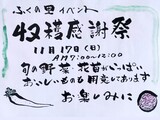 ふくの里 イベント
収穫感謝祭
11月17日(日)
AM7:00~12:00
旬の野菜・花苗がいっぱい
おいしいものも用意しております
お楽しみに